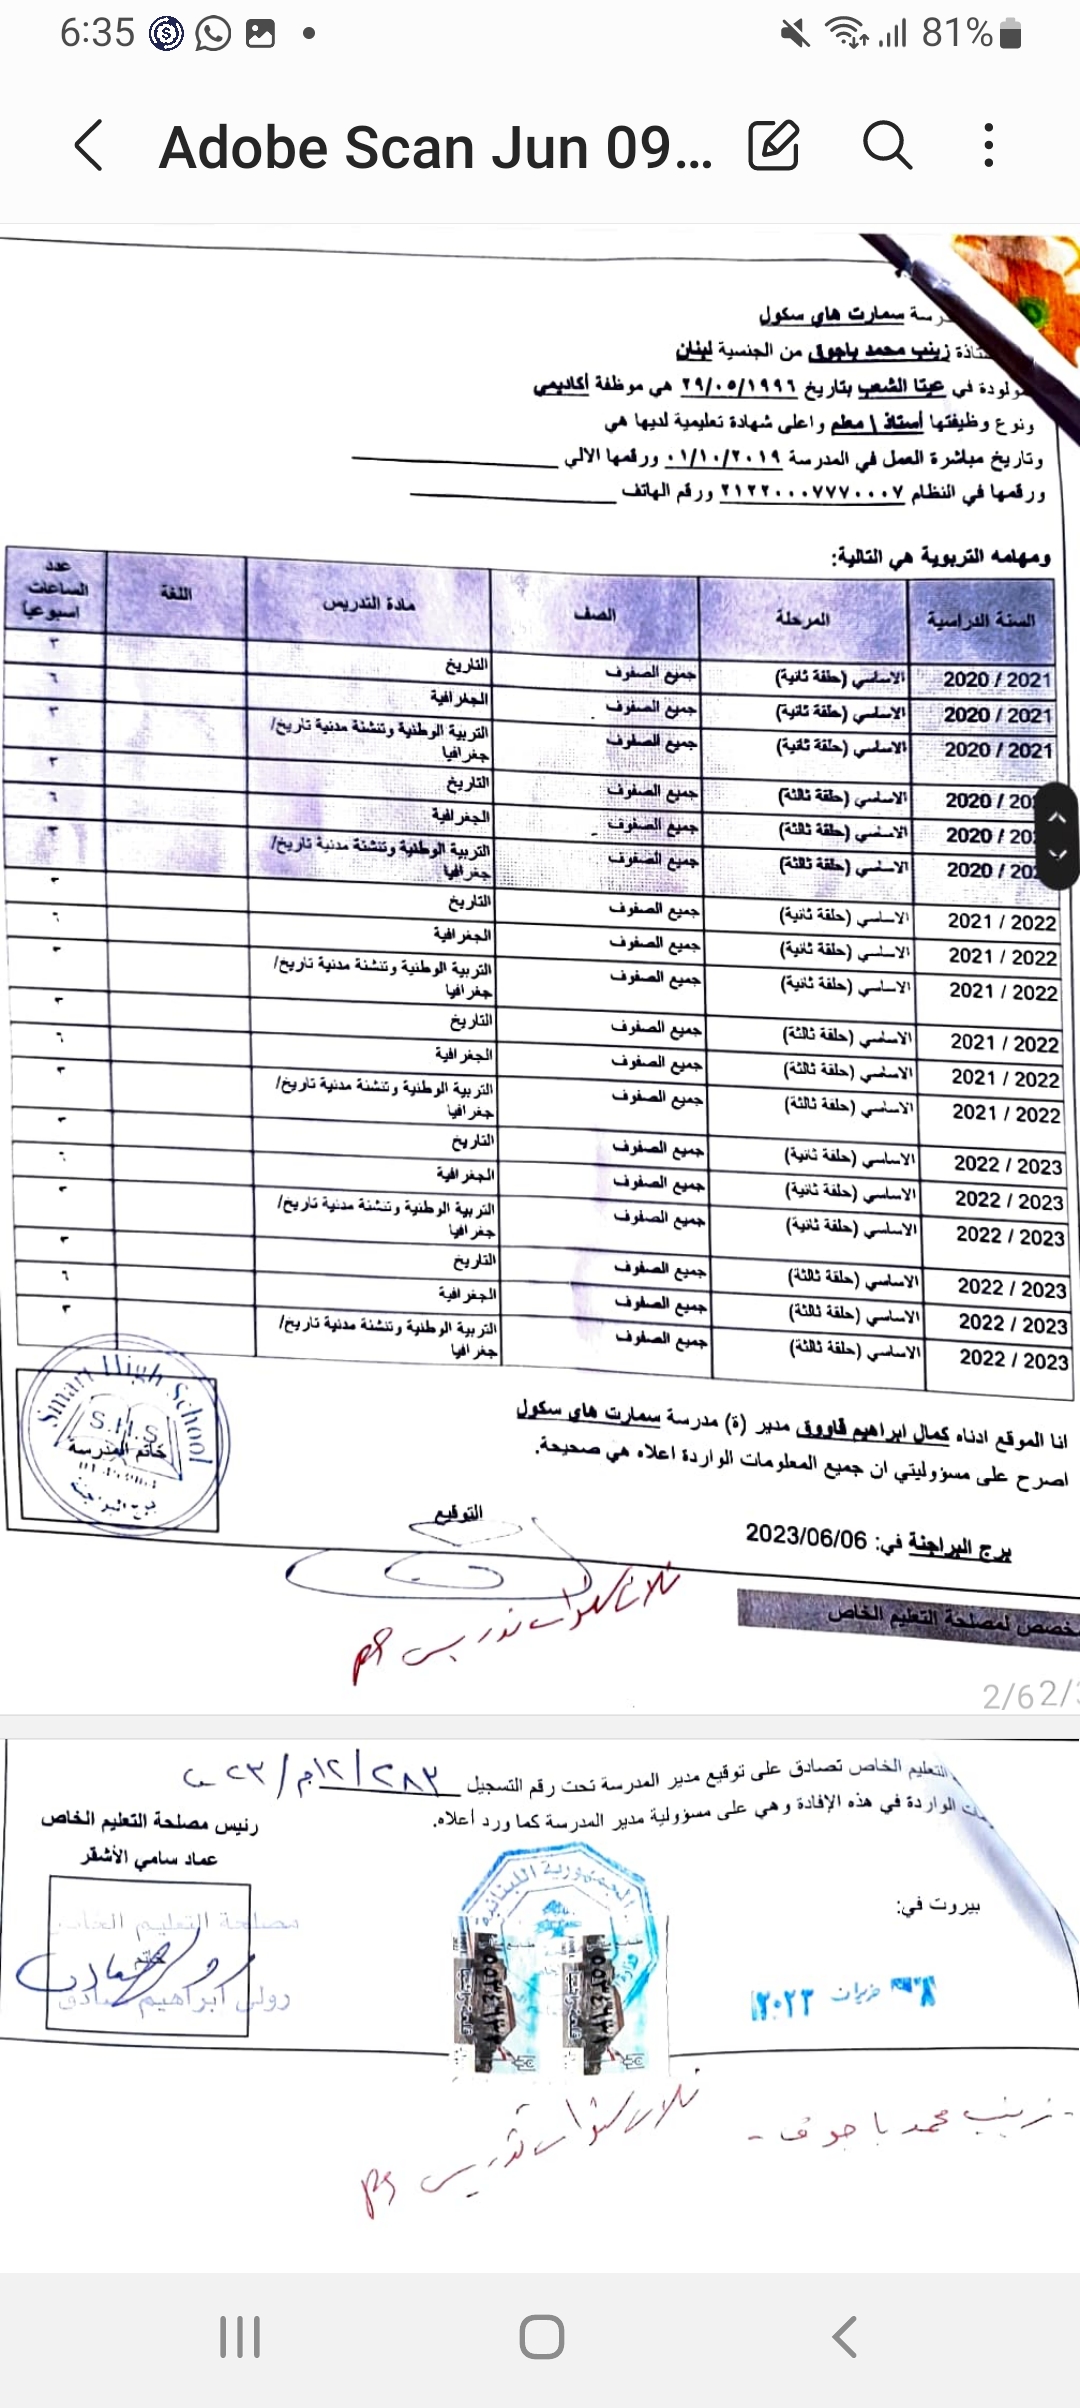 6:35
81%
Adobe Scan Jun 09...
سمارت هاي سكول
زينب محمد باجوق من الجنسية لبنان
في عيتا الشعب بتاريخ ٢٩/٠٥/١٩٩٦ هي موظفة أكاديمي
ونوع وظيفتها أستاذ \ معلم واعلى شهادة تعليمية لديها هي
وتاريخ مباشرة العمل في المدرسة ٠١/١٠/٢٠١٩ ورقمها الالي
ورقمها في النظام ٢١٢٢٠٠٠٧٧٧٠٠٠٧ ورقم الهاتف
ومهامه التربوية هي التالية:
السنة الدراسية المرحلة الصف مادة التدريس اللغة عدد الساعات اسبوعيا
2020 / 2021 الاساسي (حلقة ثانية) جميع الصفوف التاريخ ٣
2020 / 2021 الاساسي (حلقة ثانية) جميع الصفوف الجغرافية ٦
2020 / 2021 الاساسي (حلقة ثانية) جميع الصفوف التربية الوطنية وتنشئة مدنية تاريخ/ جغرافيا ٣
2020 / 20 الاساسي (حلقة ثالثة) جميع الصفوف التاريخ ٣
2020 / 20 الاساسي (حلقة ثالثة) جميع الصفوف الجغرافية ٦
2020 / 20 الاساسي (حلقة ثالثة) جميع الصفوف التربية الوطنية وتنشئة مدنية تاريخ/ جغرافيا ٣
2021 / 2022 الاساسي (حلقة ثانية) جميع الصفوف التاريخ
2021 / 2022 الاساسي (حلقة ثانية) جميع الصفوف الجغرافية ٦
2021 / 2022 الاساسي (حلقة ثانية) جميع الصفوف التربية الوطنية وتنشئة مدنية تاريخ/ جغرافيا
2021 / 2022 الاساسي (حلقة ثالثة) جميع الصفوف التاريخ
2021 / 2022 الاساسي (حلقة ثالثة) جميع الصفوف الجغرافية ٦
2021 / 2022 الاساسي (حلقة ثالثة) جميع الصفوف التربية الوطنية وتنشئة مدنية تاريخ/ جغرافيا
2022 / 2023 الاساسي (حلقة ثانية) جميع الصفوف التاريخ
2022 / 2023 الاساسي (حلقة ثانية) جميع الصفوف الجغرافية ٦
2022 / 2023 الاساسي (حلقة ثانية) جميع الصفوف التربية الوطنية وتنشئة مدنية تاريخ/ جغرافيا
2022 / 2023 الاساسي (حلقة ثالثة) جميع الصفوف التاريخ
2022 / 2023 الاساسي (حلقة ثالثة) جميع الصفوف الجغرافية ٦
2022 / 2023 الاساسي (حلقة ثالثة) جميع الصفوف التربية الوطنية وتنشئة مدنية تاريخ/ جغرافيا ٣
انا الموقع ادناه كمال ابراهيم قاروق مدير (ة) مدرسة سمارت هاي سكول
اصرح على مسؤوليتي ان جميع المعلومات الواردة اعلاه هي صحيحة.
Smart High School
S.H.S
خاتم المدرسة
برج البراجنة
التوقيع
برج البراجنة في: 2023/06/06
ثلاث سنوات تدريس
مخصص لمصلحة التعليم الخاص
2/6
التعليم الخاص تصادق على توقيع مدير المدرسة تحت رقم التسجيل
الواردة في هذه الإفادة وهي على مسؤولية مدير المدرسة كما ورد أعلاه.
رئيس مصلحة التعليم الخاص
عماد سامي الأشقر
الجمهورية اللبنانية
مصلحة التعليم الخاص
رولى ابراهيم صادق
بيروت في:
حزيران ٢٠٢٣
ثلاث سنوات تدريس
- زينب محمد باجوق -